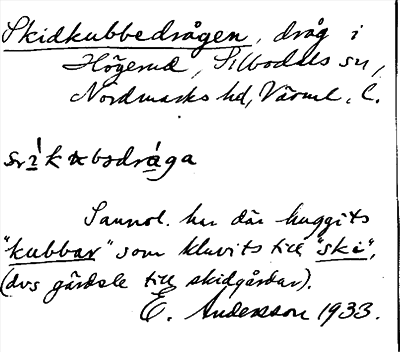 Skidkubbedrågen, dråg i
Högerud, Silbodals sn,
Nordmarks hd, Värml. l.
Sannol. har där huggits
"kubbar" som kluvits till "ski",
(dvs gärdsle till skidgårdar).
E. Andersson 1933.